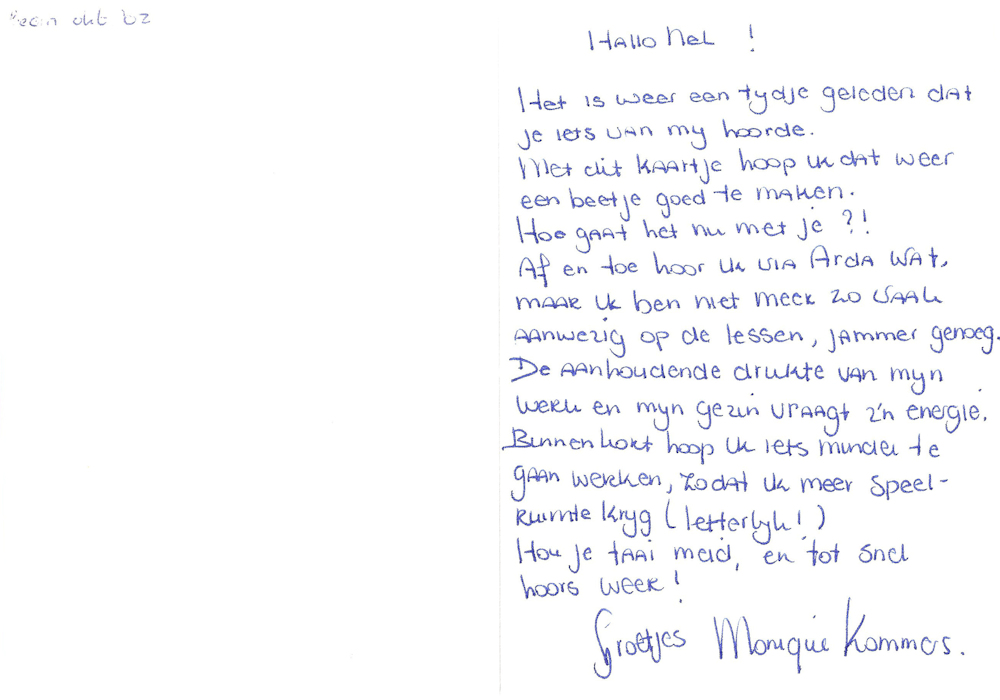 okt 02
Hallo Nel !
Het is weer een tydje geleden dat
je iets van my hoorde.
Met dit kaartje hoop ik dat weer
een beetje goed te maken.
Hoe gaat het nu met je ?!
Af en toe hoor ik via Arda wat,
maar ik ben niet meer zo vaak
aanwezig op de lessen, jammer genoeg.
De aanhoudende drukte van myn
werk en myn gezin vraagt z'n energie.
Binnenkort hoop ik iets minder te
gaan werken, zodat ik meer speel-
ruimte kryg (letterlyk!)
Hou je taai meid, en tot snel
hoors weer!
Groetjes Monique Kommers.